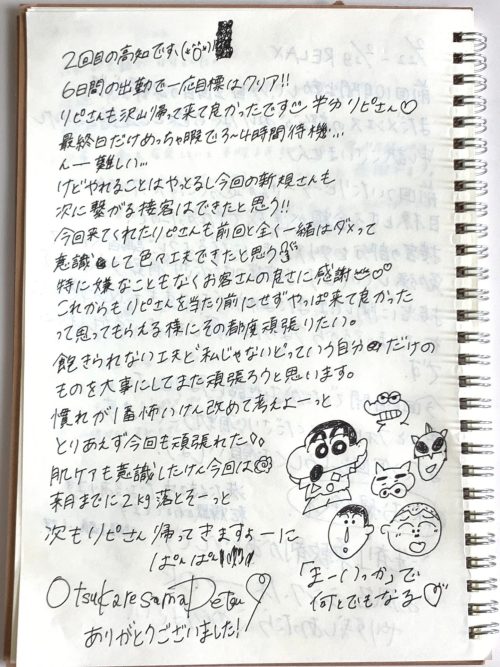 2回目の高知です、
6日間の出勤で一応目標はクリア!!
リピさんも沢山帰って来て良かったです 半分リピさん♡
最終日だけめっちゃ暇で3〜4時間待機...
んー難しい...
けどやれることはやっとるし今回の新規さんも
次に繋がる接客はできたと思う!!
今回来てくれたリピさんも前回と全く一緒はダメって
意識して色々工夫できたと思う
特に嫌なこともなくお客さんの良さに感謝♡
これからもリピさんを当たり前にせずやっぱ来て良かった
って思ってもらえる様にその都度頑張りたい。
飽きられない工夫と私じゃないとっていう自分だけの
ものを大事にしてまた頑張ろうと思います。
慣れが1番怖いけん改めて考えよーっと
とりあえず今回も頑張れた
肌ケアも意識したけん今回は
来月までに2kg落とそーっと
次もリピさん帰ってきますよーに
ぱんぱん
Otsukaresama Detsu♡
ありがとうございました!
「まーいっか」で
何とでもなる